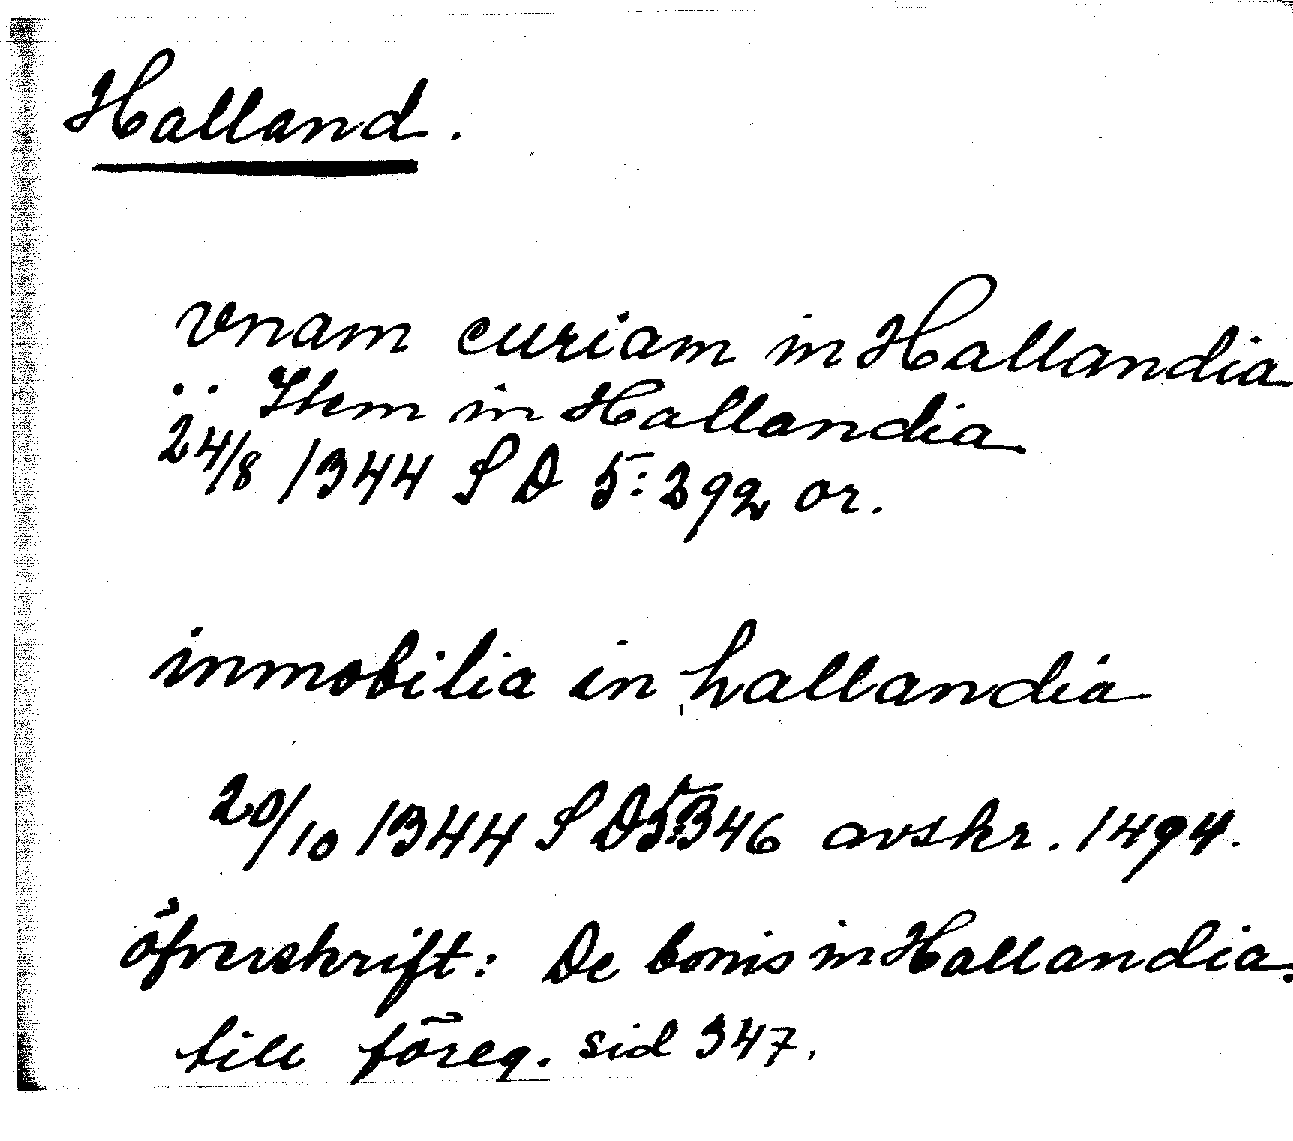 Halland.
vnam curiam in Hallandia
.. Item in Hallandia
24/8 1344 S D 5: 292 or.
inmobilia in hallandia
20/10 1344 S D 5:346 avskr. 1494.
öfverskrift: De bonis in Hallandia.
till föreg. sid 347.